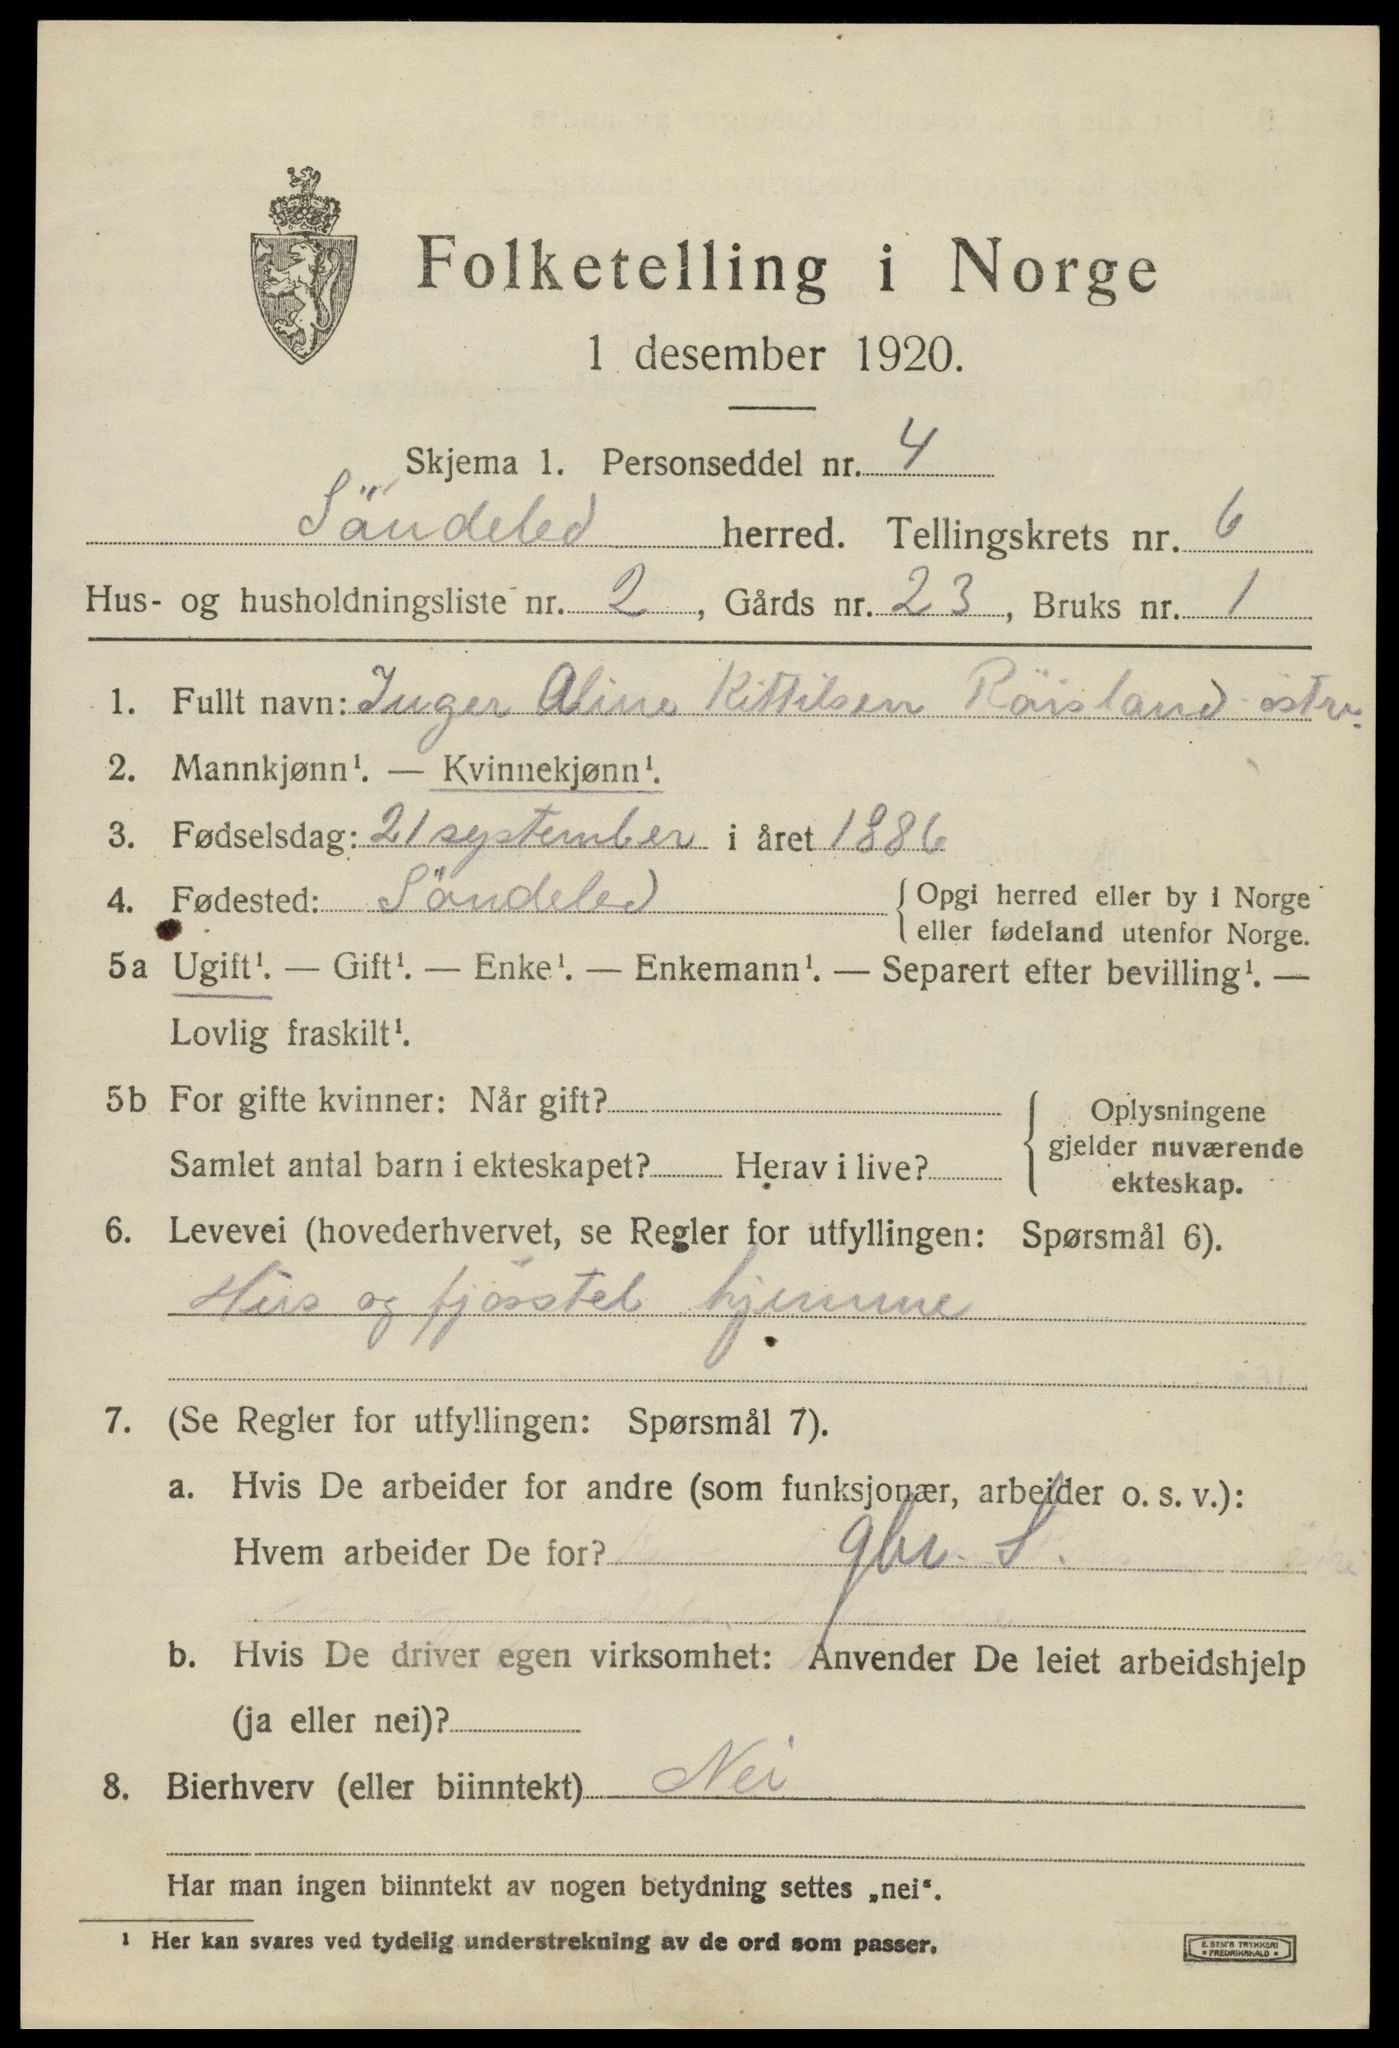 Folketelling i Norge
1 desember 1920.
Skjema 1. Personseddel nr. 4
Söndeled herred. Tellingskrets nr. 6
Hus- og husholdningsliste nr. 2, Gårds nr. 23, Bruks nr. 1
1. Fullt navn: Inger Aline Kittilsen Röisland östre.
2. Mannkjønn¹. — Kvinnekjønn¹.
3. Fødselsdag: 21 september i året 1886
4. Fødested: Söndeled { Opgi herred eller by i Norge
eller fødeland utenfor Norge.
5a Ugift¹. — Gift¹. — Enke¹. — Enkemann¹. — Separert efter bevilling¹. —
Lovlig fraskilt¹.
5b For gifte kvinner: Når gift? { Oplysningene
gjelder nuværende
Samlet antal barn i ekteskapet? Herav i live?
ekteskap.
6. Levevei (hovederhvervet, se Regler for utfyllingen: Spørsmål 6).
Hus og fjösstel hjemme
7. (Se Regler for utfyllingen: Spørsmål 7).
a. Hvis De arbeider for andre (som funksjonær, arbeider o. s. v.):
Hvem arbeider De for? gbr. S.
b. Hvis De driver egen virksomhet: Anvender De leiet arbeidshjelp
(ja eller nei)?
8. Bierhverv (eller biinntekt) Nei
Har man ingen biinntekt av nogen betydning settes „nei“.
¹ Her kan svares ved tydelig understrekning av de ord som passer.
E. SEM'S TRYKKERI
FREDRIKSHALD